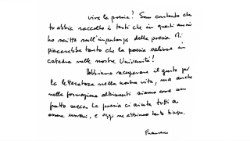 Viva la poesia! Sono contento che
tu abbia raccolto i testi che in questi anni
ho scritto sull'importanza della poesia. Mi
piacerebbe tanto che la poesia salisse in
cattedra nelle nostre Università!
Dobbiamo recuperare il gusto per
la letteratura nella nostra vita, ma anche
nella formazione altrimenti siamo come un
frutto secco. La poesia ci aiuta tutti a
essere umani, e oggi ne abbiamo tanto bisogno.
Francesco